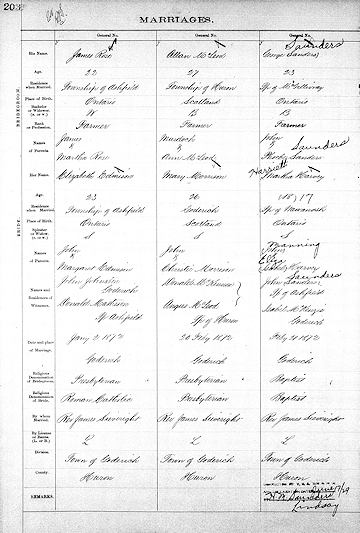 203
MARRIAGES.
General No.
General No.
General No.
BRIDEGROOM.
His Name
James Rose
Allan McLeod
George Sanders
Saunders
Age
22
27
23
Residence when Married.
Township of Ashfield
Township of Huron
Tp. of McGillivray
Place of Birth.
Ontario
Scotland
Ontario
Bachelor or Widower. (B. or W.)
W
B
B
Rank or Profession.
Farmer
Farmer
Farmer
Names of Parents.
James
&
Martha Rose
Murdoch
&
Ann McLeod
John
&
Phoeby Sanders
Saunders
BRIDE.
Her Name
Elizabeth Edmison
Mary Morrison
Martha Harvey
Harriett
Age
23
26
17
Residence when Married.
Township of Ashfield
Goderich
Tp. of Wawanosh
Place of Birth
Ontario
Scotland
Ontario
Spinster or Widow. (S. or W.)
S
S
S
Names of Parents.
John
&
Margaret Edmison
John
&
Christie Morrison
John
Manning
Eliza
Harvey
Names and Residences of Witnesses.
John Johnston
Goderich
Donald Matheson
Tp Ashfield
Donald McKinnon
Angus McLeod
Tp of Huron
Saunders
John Sanders
Tp of Ashfield
Isabel McKenzie
Goderich
Date and place of Marriage.
Jany 2 1872
Goderich
20 Feby 1872
Goderich
Feby 21 1872
Goderich
Religious Denomination of Bridegroom.
Presbyterian
Presbyterian
Baptist
Religious Denomination of Bride.
Roman Catholic
Presbyterian
Baptist
By whom Married.
Rev James Sieveright
Rev James Sieveright
Rev James Sieveright
By License or Banns. (L. or B.)
L
L
L
Division.
Town of Goderich
Town of Goderich
Town of Goderich
County.
Huron
Huron
Huron
REMARKS.
Saunders
Lindsay